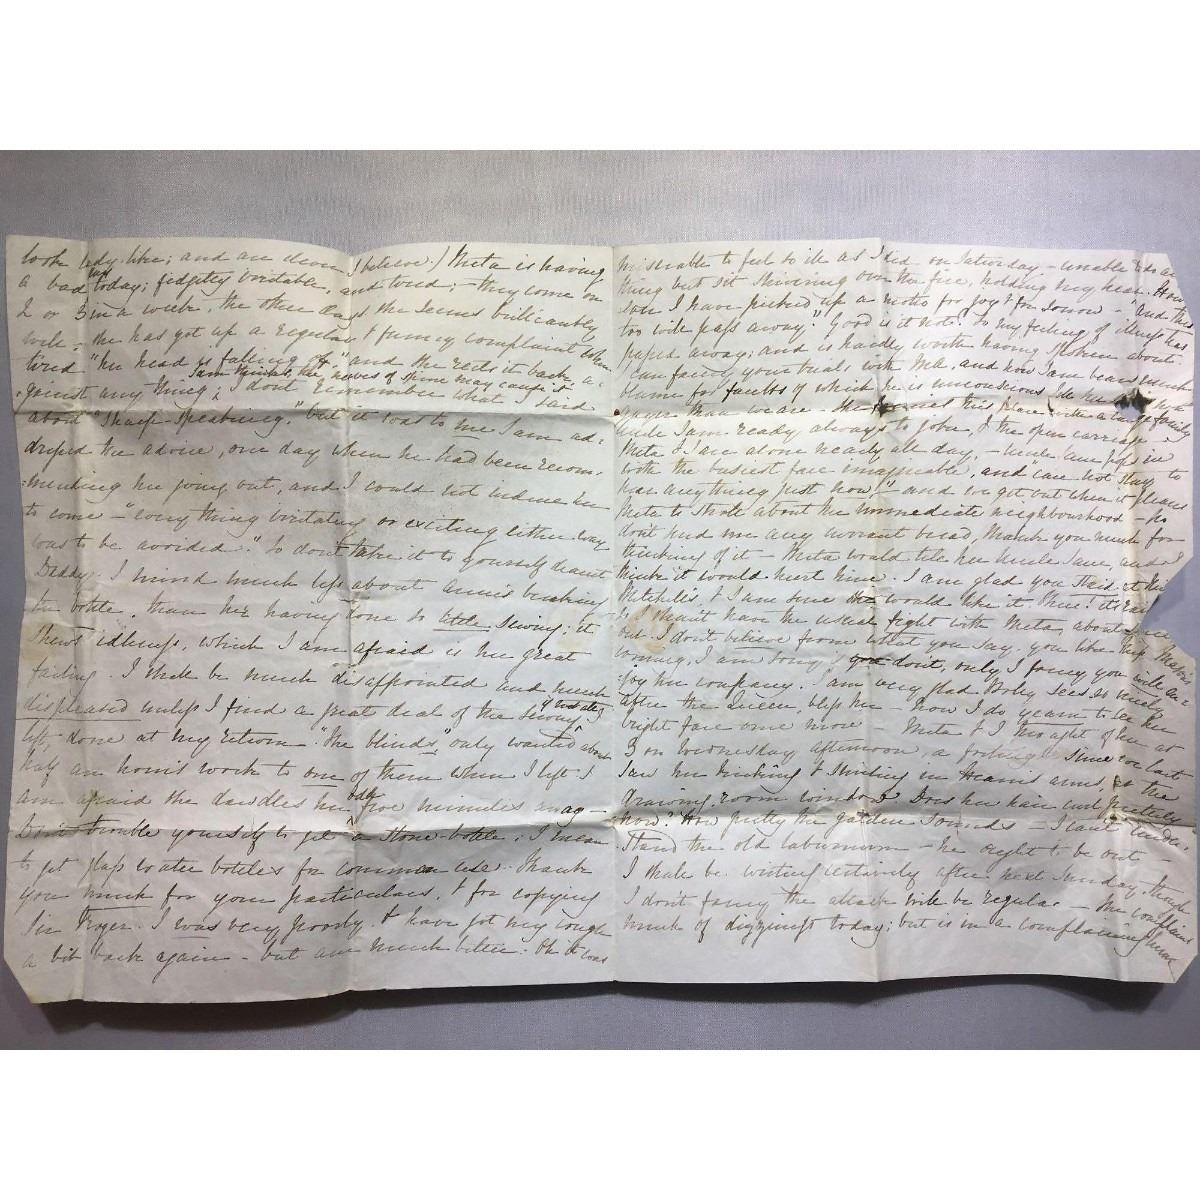 look lady-like; and are clever I believe.) Meta is having
a bad day today; fidgetty irritable, and tired; - they come on
2 or 3 in a week, the other days she seems brilliantly
well - she has got up a regular & funny complaint when
tired "her head is falling off" and she rests it back a-
I am afraid the nerves of the spine may cause it
gainst any thing, I don't remember what I said
about "Sharp-speaking," but it was to me I am ad-
dressed the advice, one day when he had been recom-
mending her going out, and I could not induce her
to come - "every thing irritating or exciting either way
was to be avoided." So don't take it to yourself dearest
Daddy. I mind much less about Annie's breaking
the bottle, than her having done so little sewing; it
shews idleness, which I am afraid is her great
failing. I shall be much disappointed and much
displeased unless I find a great deal of the sewing, I
left, done at my return. "The blinds," only wanted about
half an hour's work to one of them when I left. I
am afraid she dawdles her odd five minutes away -
Don't trouble yourself to get a stone-bottle; I mean
to get glass water bottles for common use. Thank
you much for your particulars, & for copying
Sir Fryer. I was very poorly & have got my cough
a bit back again - but am much better: Oh it was
miserable to feel so ill as I did on Saturday - unable to do any
thing but sit shivering over the fire, holding my head. How
ever I have picked up a motto for joy & for sorrow - "And this
too will pass away." Good is it not? So my feeling of illness has
passed away; and is hardly worth having spoken about.
I can fancy your trials with and how I am
blame for faults of which he is unconscious
this place with a large family
while I am ready always to jobu, & the open carriage -
Meta & I are alone nearly all day, - Uncle Sam pops in
with the busiest face imaginable, and "can not stay to
hear any thing just now" - and we get out when it pleases
Meta to stroll about the immediate neighbourhood - No
don't send me any currant bread, thank you much for
thinking of it - Meta would tell her Uncle Sam, and I
think it would hurt him. I am glad you
& I am sure would like it.
I shan't have the usual fight with Meta, about
but I don't believe from what you say, you like
coming, I am sorry if you don't, only I fancy you will en-
joy his company. I am very glad Boley sees so nicely
after the Queen, bless her - how I do yearn to see her
bright face once more Meta & I thought of her at
3 on Wednesday afternoon, a fortnight since we last
saw her kicking & shrieking in Hearn's arms, at the
drawing-room window. Does her hair curl prettily
now? How pretty the garden sounds - I can't under-
stand the old laburnum - he ought to be out -
I shall be writing certainly after next Sunday, though
I don't fancy the attack will be regular - She complains
much of dizziness today; but is in a complaining humour